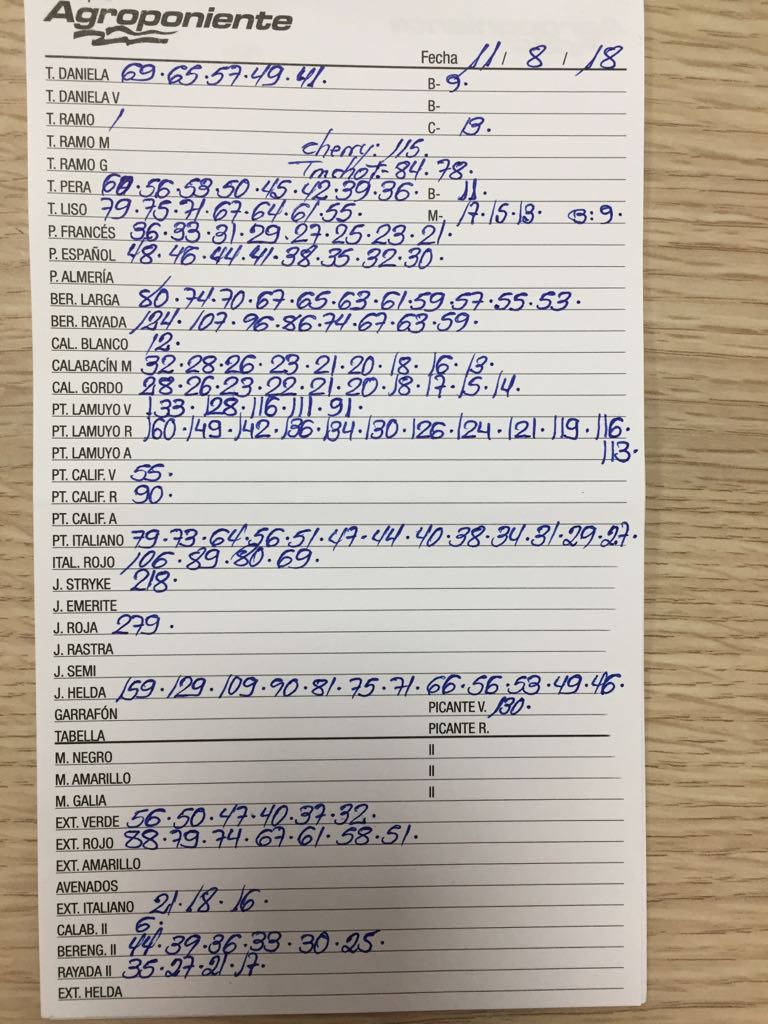 Agroponiente
Fecha 11 / 8 / 18
T. DANIELA 69·65·57·49·41. B- 9.
T. DANIELA V B-
T. RAMO / C- 13.
T. RAMO M cherry: 115.
T. RAMO G 84.78.
T. PERA 60·56·53·50·45·42·39·36· B- 11.
T. LISO 79·75·71·67·64·61·55· M- 17·15·13· B:9.
P. FRANCÉS 36·33·31·29·27·25·23·21·
P. ESPAÑOL 48·46·44·41·38·35·32·30·
P. ALMERÍA
BER. LARGA 80·74·70·67·65·63·61·59·57·55·53·
BER. RAYADA 124·107·96·86·74·67·63·59·
CAL. BLANCO 12·
CALABACÍN M 32·28·26·23·21·20·18·16·13·
CAL. GORDO 28·26·23·22·21·20·18·17·15·14·
PT. LAMUYO V 133·128·116·111·91·
PT. LAMUYO R 160·149·142·136·134·130·126·124·121·119·116·
PT. LAMUYO A 113·
PT. CALIF. V 55·
PT. CALIF. R 90·
PT. CALIF. A
PT. ITALIANO 79·73·64·56·51·47·44·40·38·34·31·29·27·
ITAL. ROJO 106·89·80·69·
J. STRYKE 218·
J. EMERITE
J. ROJA 279·
J. RASTRA
J. SEMI
J. HELDA 159·129·109·90·81·75·71·66·56·53·49·46·
GARRAFÓN PICANTE V. 130·
TABELLA PICANTE R.
M. NEGRO II
M. AMARILLO II
M. GALIA II
EXT. VERDE 56·50·47·40·37·32·
EXT. ROJO 88·79·74·67·61·58·51·
EXT. AMARILLO
AVENADOS
EXT. ITALIANO 21·18·16·
CALAB. II 6·
BERENG. II 44·39·36·33·30·25·
RAYADA II 35·27·21·17·
EXT. HELDA